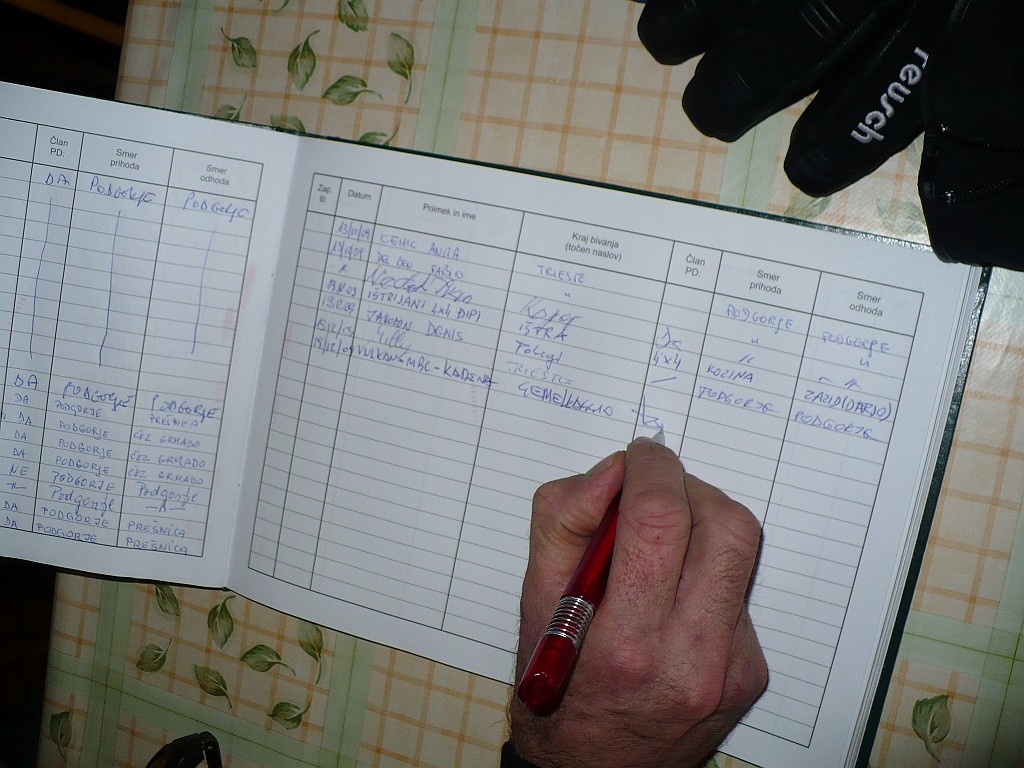 reusch
Član PD: Smer prihoda Smer odhoda
DA PODGORJE PODGORJE
DA PODGORJE PODGORJE
DA PODGORJE PREŠNICA
DA PODGORJE ČEZ GRMADO
DA PODGORJE ČEZ GRMADO
NE PODGORJE ČEZ GRMADO
Podgorje Podgorje
DA PODGORJE PREŠNICA
DA PODGORJE PREŠNICA
Zap. št. Datum Priimek in ime Kraj bivanja (točen naslov) Član PD: Smer prihoda Smer odhoda
13/12/09 CEHIC ANITA TRIESTE PODGORJE PODGORJE
FABIO "
Koper
ISTRIJANI 4x4 DIPI ISTRA 4x4 KOZINA ZAZID (DARJO)
DENIS PODGORJE PODGORJE
TRIESTE
VULKAN MBC - KADENA